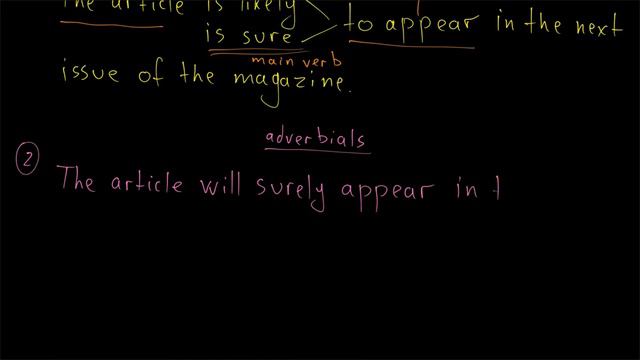 The article is likely
is sure to appear in the next
main verb
issue of the magazine.
adverbials
2 The article will surely appear in t